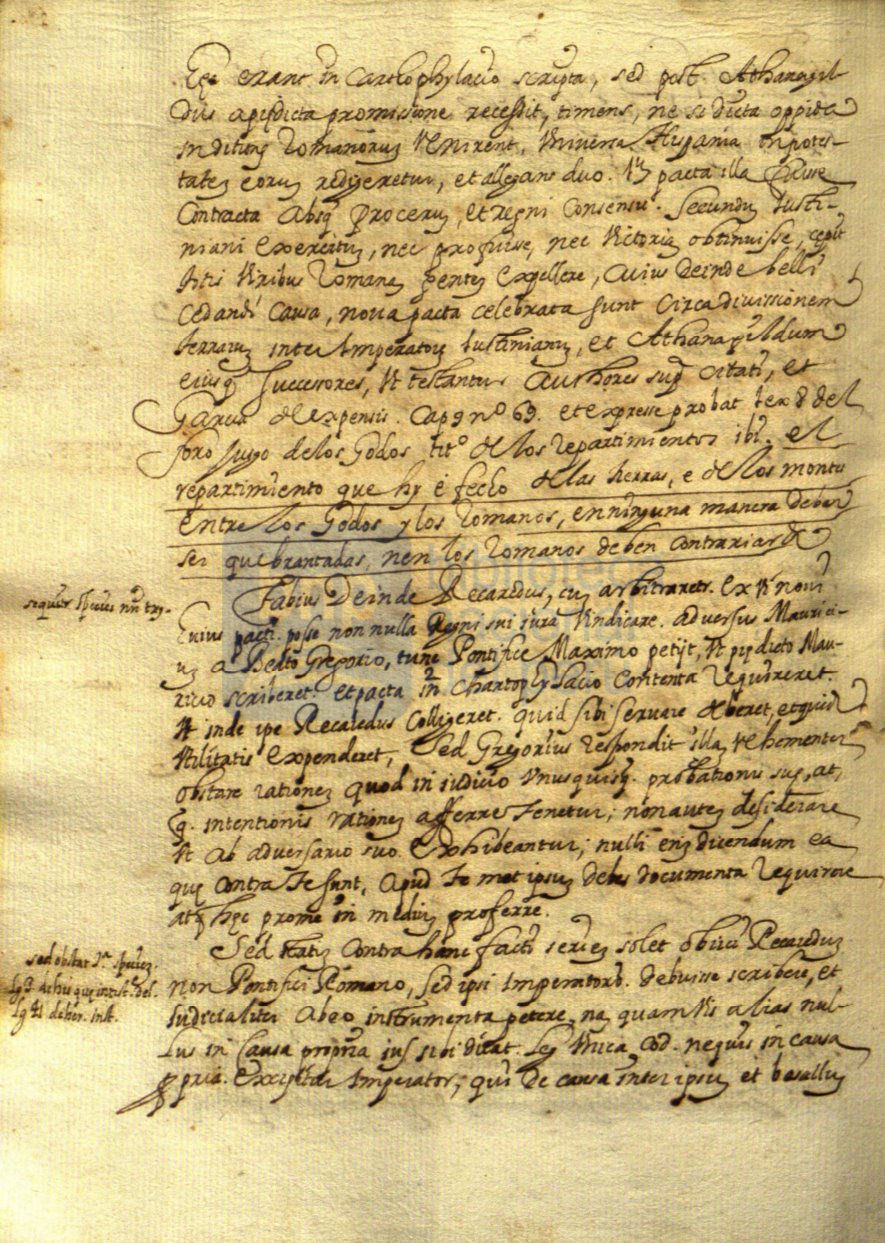 Eqe erant in Cartophylacio scripta, sed post Athanagil-
dus apredicta promissione recessit, timens, ne si dicta oppida
in ditione Romanorum venirent, universa Hispania in potes-
tatem eorum redigeretur, et allegans duo. pacta illa fuisse
Contracta absq procerum, et regni Consensu. Secundum Iusti-
niani exercitum, nec profuisse, nec victoriam obtinuisse, cepit
viribus Romanam gentem expellere, cuius deinde belli
cedandi Causa, nova pacta celebrata sunt circa divissionem
terrarum inter Imperatorem Iustinianum, et Athanagildum
eiusq Successores, vt testantur Authores supr citati, et
Garcia de expensis. Cap 9 nº 69. et expresse probat lex 8 del
foro Jusgo de los Godos titº de los repartimientos ibi. el
repartimiento que hy é fecho de las tierras, e de los montes
entre los Godos y los Romanos, en ninguna manera deben
ser quebrantadas, nen los Romanos deben contrariar &
Fabius Deinde Recaredus, cum arbitraretr. ex vi novi
sequitr species nn try.
Cuius pacti. posse non nulla Regni sui iura vindicare. adversus Maurici-
um a Beato Gregorio, tunc Pontifice Maximo petijt, vt predicto Mau-
ricio scriberet. et pacta in Chartophylacio Contenta requireret.
vt inde ipe Recaredus Colligeret. quid sibi servare deberet, et quid
vtilitatis expenderet, Sed Gregorius respondit illam vehementer
obstare rationem quod in iudicio vnusquisq. probationis sue, at
q. intentionis rationem afferre tenetur; non autem desiderare
vt ab adversario suo. exhibeantur; nulli enim dicendum ea
que contra te sunt, apud te met ipsum debes documenta requirere
atq hec prome in medium proferre.
Sed statim contra hanc facti seriem solet obiici Recaredum
sed obstat 1ª species.
non Pontifici Romano, Sed ipsi Imperatorib. debuisse scribere, et
lg 3 de his que in test. del.
Iudicialiter ab eo instrumenta petere, nam quam vis alias nul-
lg 41 de her. inst.
lus in Causa propria ius sibi dicat. leg vnica Cod. ne quis in causa
ppria. excipitur Imperator, qui de causa inter ipsum et basallum